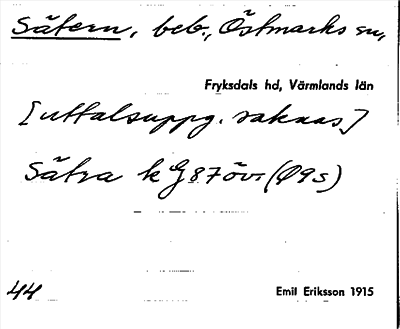 Sätern, beb., Östmarks sn,
Fryksdals hd, Värmlands län
[uttalsuppg. saknas]
Sätra k G 87 övr (Ø9s)
44 Emil Eriksson 1915